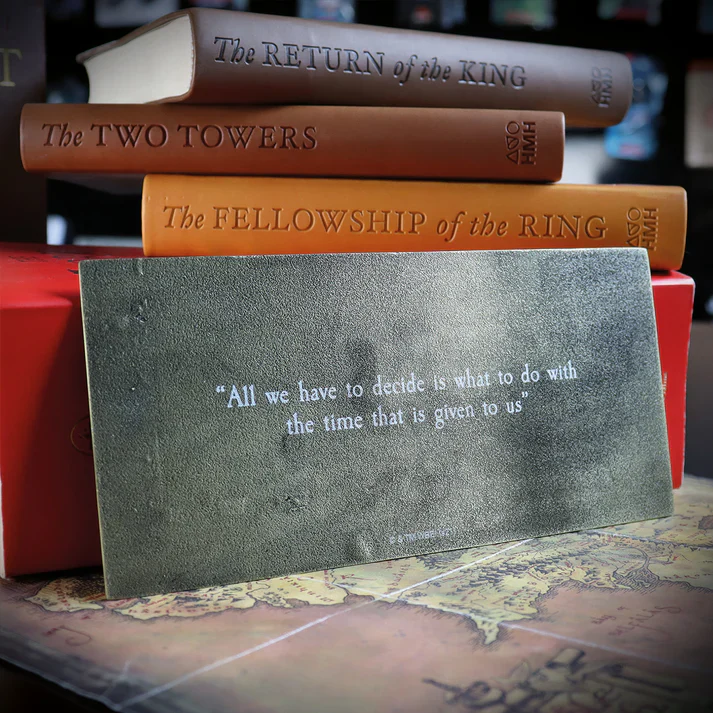 The RETURN of the KING
HMH
The TWO TOWERS
HMH
The FELLOWSHIP of the RING
HMH
T
“All we have to decide is what to do with
the time that is given to us”